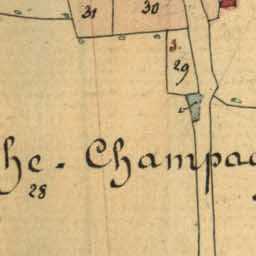 31 30
3.
29
he. Champag
28